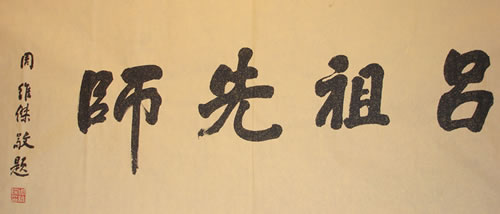 呂祖先師
周維傑敬題